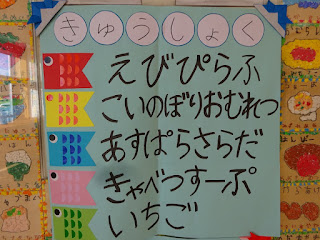 きゅうしょく
えびぴらふ
こいのぼりおむれつ
あすぱらさらだ
きゃべつすーぷ
いちご